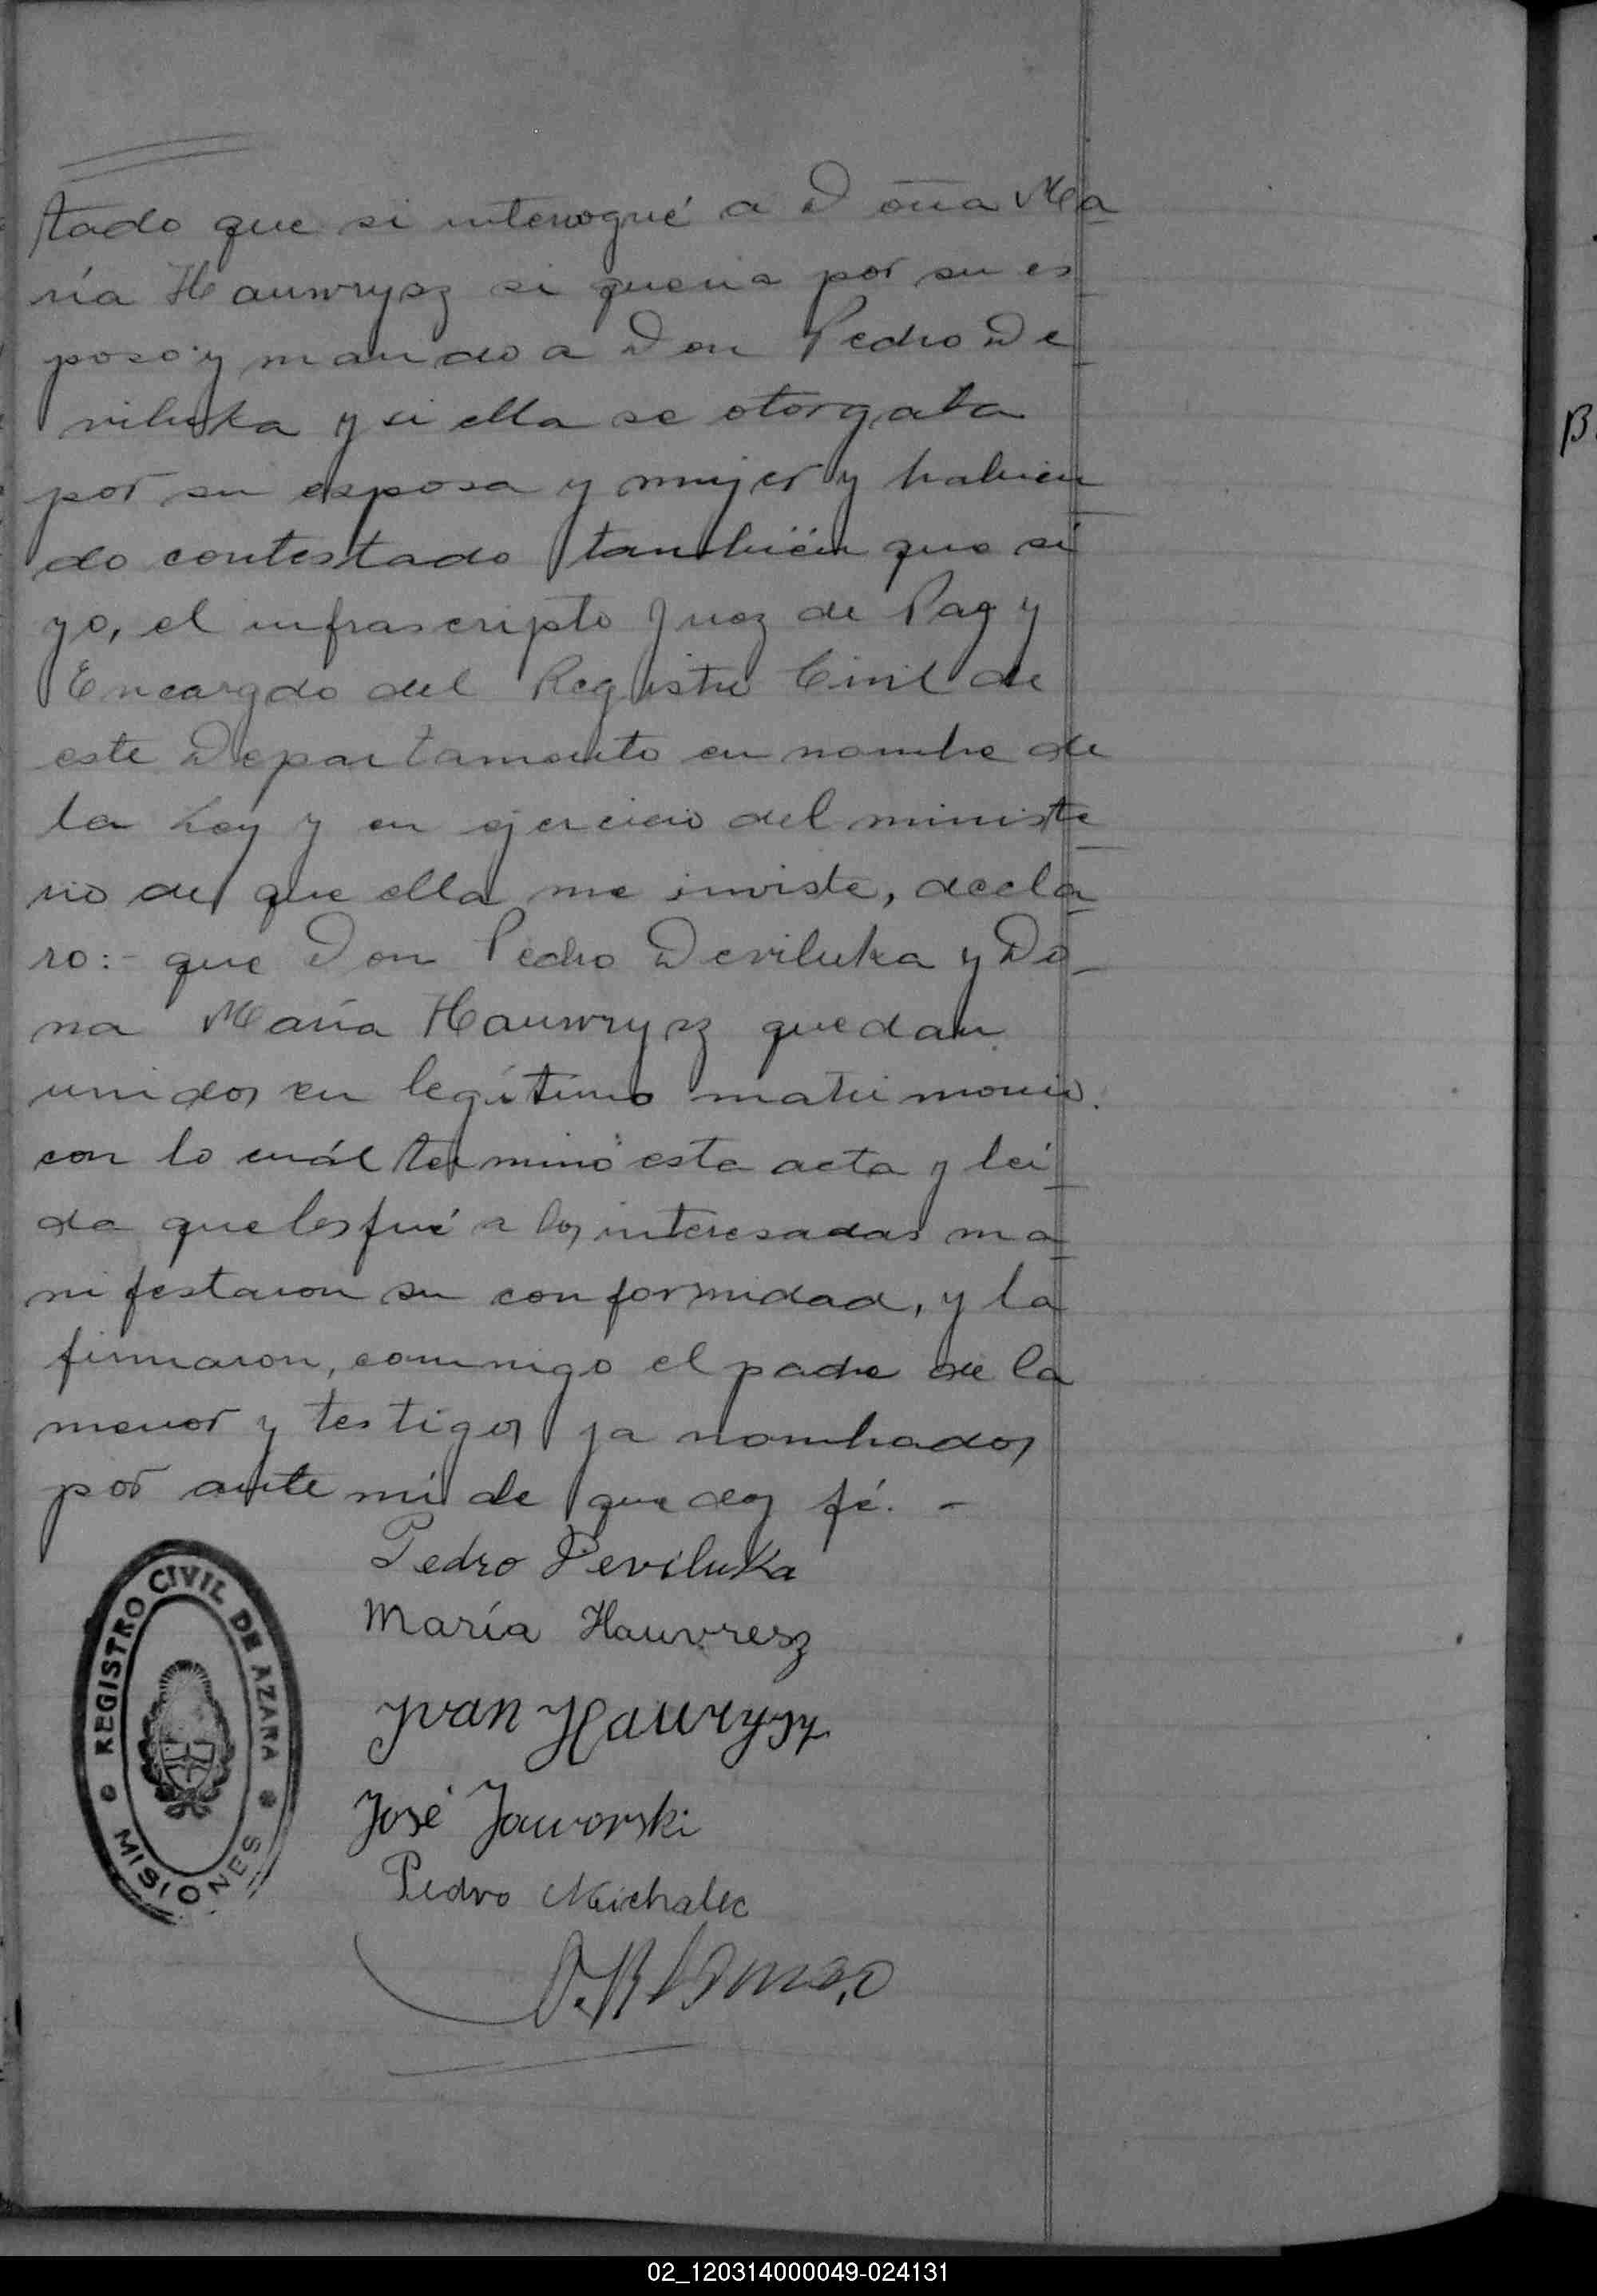 tado que si interrogué a Doña Ma
ría Hauwrysz si queria por su es
poso y marido a Don Pedro De
viluka y si ella se otorgaba
por su esposa y mujer y habien
do contestado también que si
yo, el infrascripto Juez de Paz y
Encargdo del Registro Civil de
este Departamento en nombre de
la Ley y en ejercicio del ministe
rio de que ella me inviste, decla
ro:- que Don Pedro Deviluka y Do-
na María Hauwrysz quedan
unidos en legítimo matrimonio.
con lo cuál terminó esta acta y leí
da que les fué a los interesadas ma
nifestaron su conformidad, y la
firmaron, conmigo el padre de la
menor y testigos ya nombrados
por ante mí de que doy fé. -
Pedro Deviluka
María Hauvresz
Yvan Hauryysz
José Jaworski
Pedro Michalec
REGISTRO CIVIL DE AZARA
MISIONES
B
02_120314000049-024131